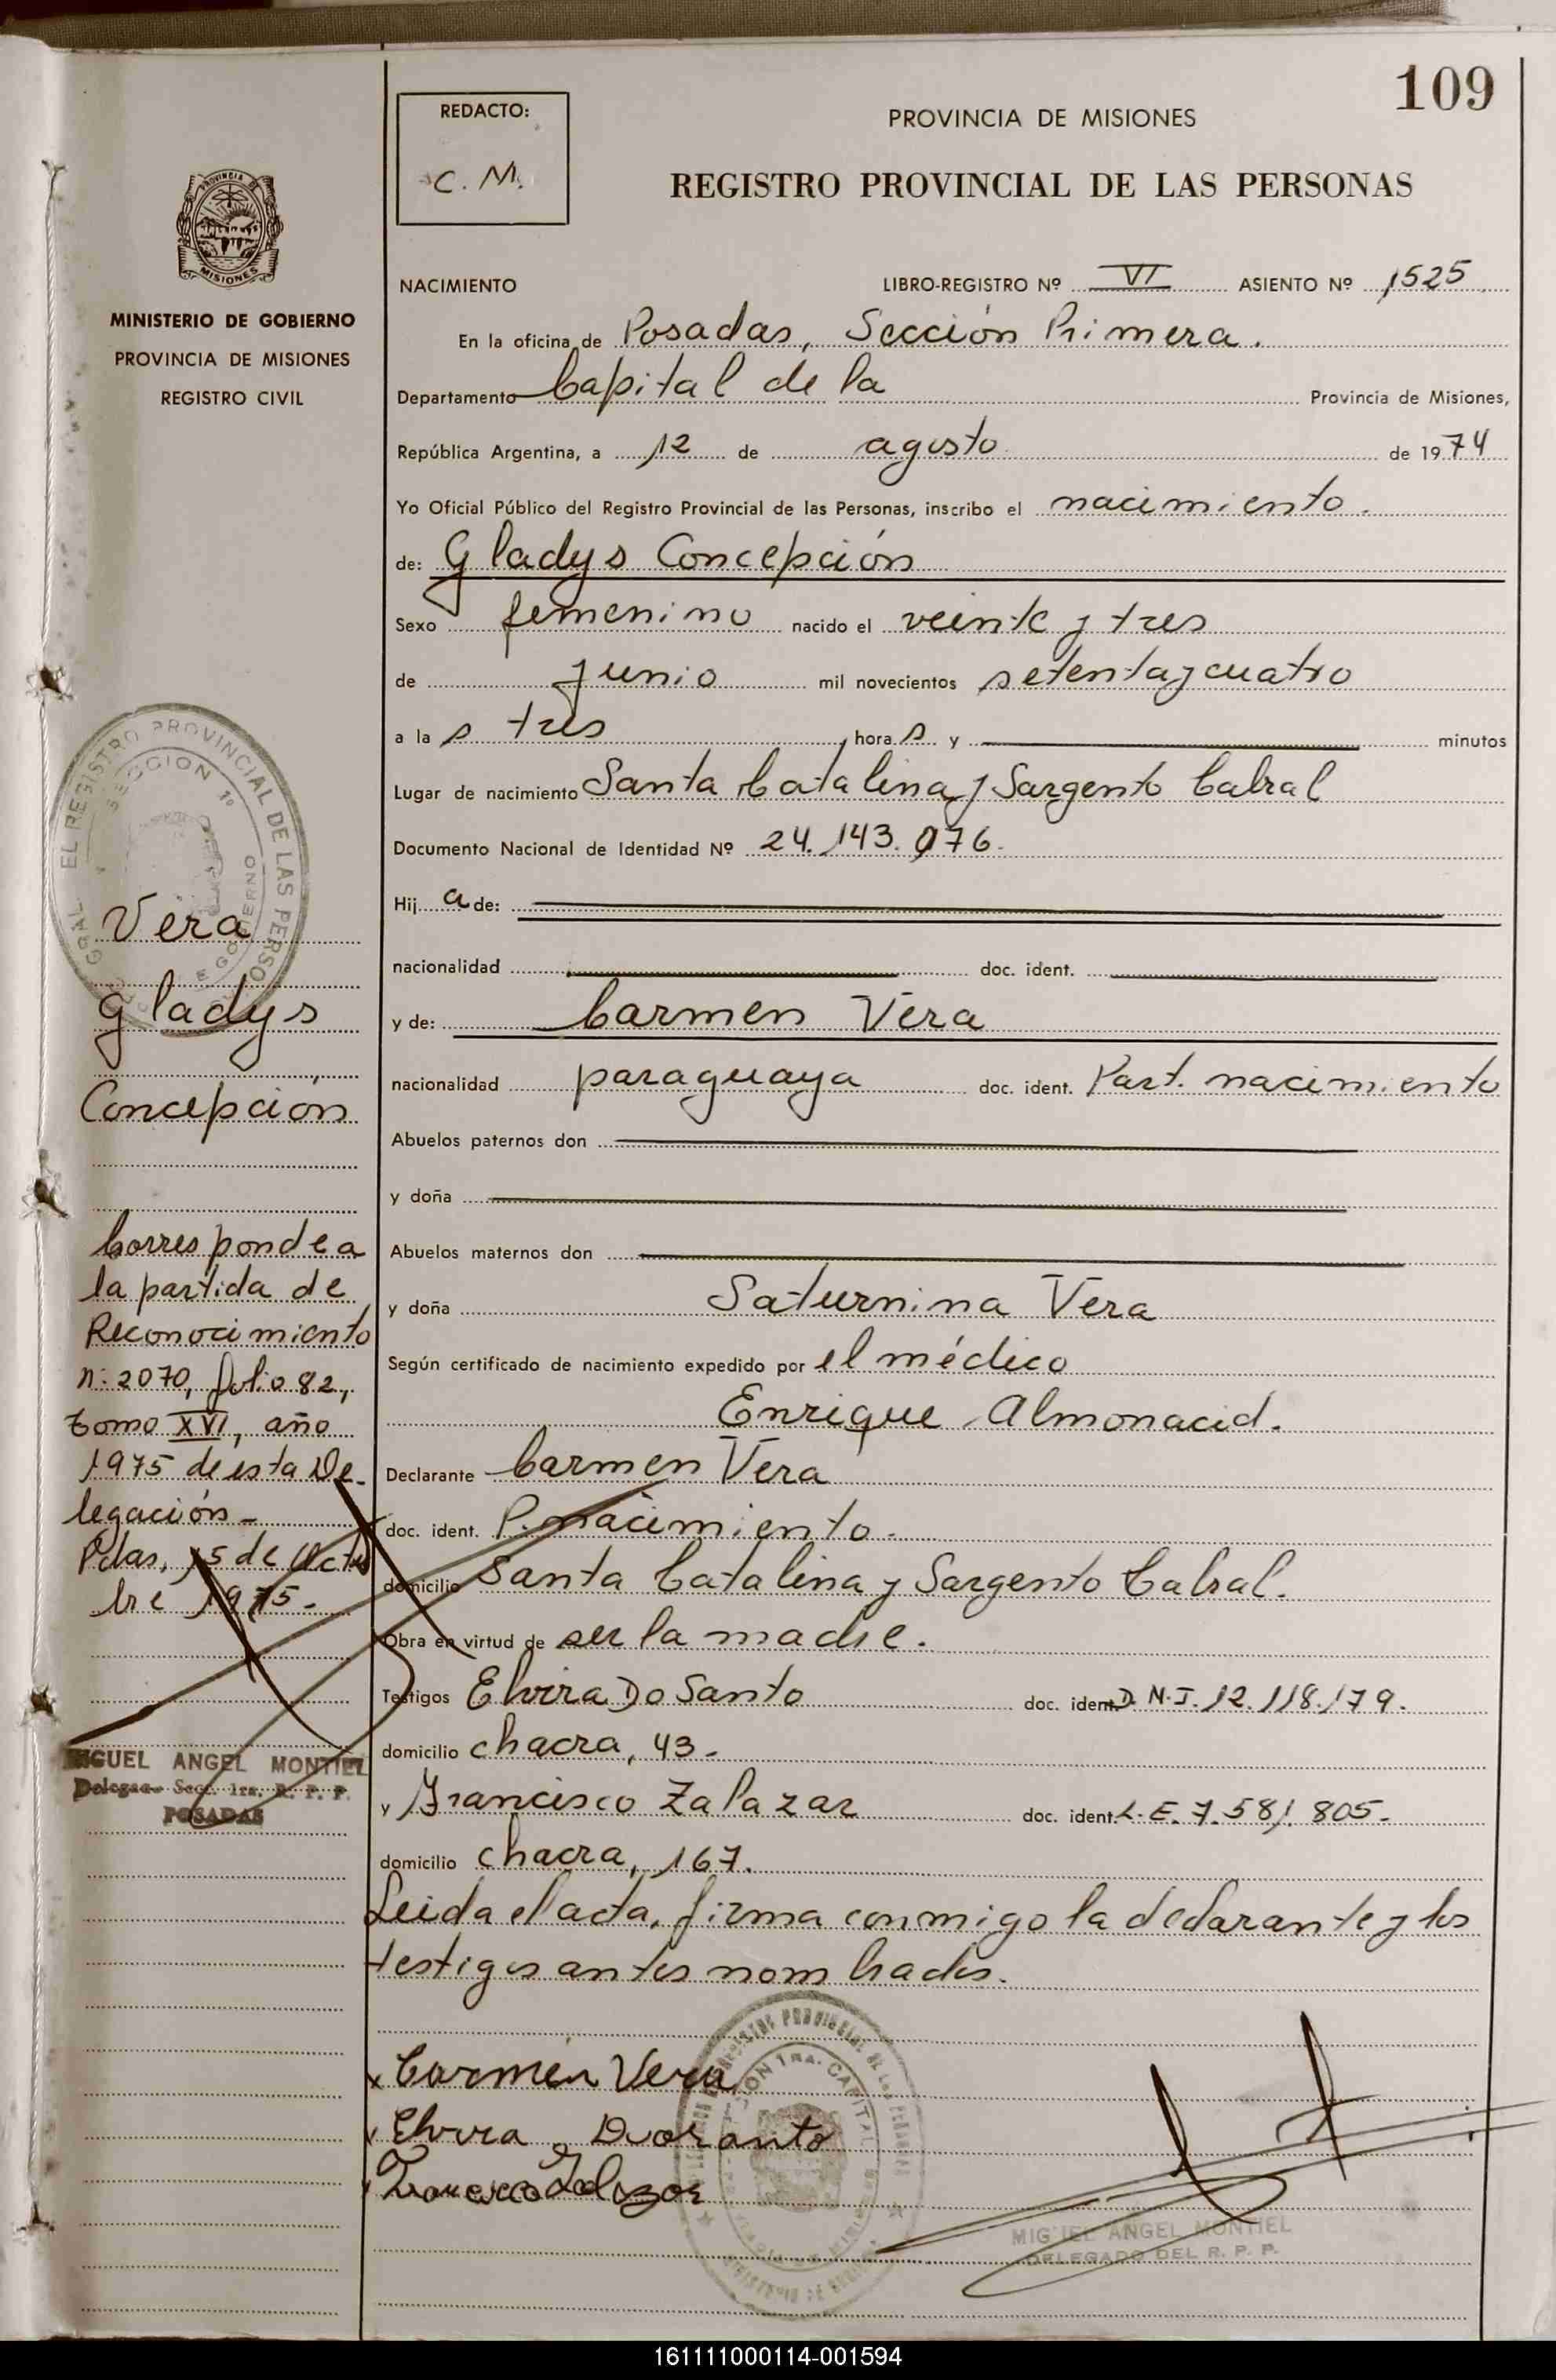 109
REDACTO:
C. M.
PROVINCIA DE MISIONES
REGISTRO PROVINCIAL DE LAS PERSONAS
MISIONES
MINISTERIO DE GOBIERNO
PROVINCIA DE MISIONES
REGISTRO CIVIL
NACIMIENTO LIBRO-REGISTRO Nº VI ASIENTO Nº 1525
En la oficina de Posadas, Sección Primera.
Departamento Capital de la Provincia de Misiones,
República Argentina, a 12 de agosto de 1974
Yo Oficial Público del Registro Provincial de las Personas, inscribo el nacimiento.
de: Gladys Concepción
Sexo femenino nacido el veinte y tres
de junio mil novecientos setenta y cuatro
a la s tres hora s y minutos
Lugar de nacimiento Santa Catalina y Sargento Cabral
Documento Nacional de Identidad Nº 24.143.076.
Hij a de:
nacionalidad doc. ident.
y de: Carmen Vera
nacionalidad paraguaya doc. ident. Part. nacimiento
Abuelos paternos don
y doña
Abuelos maternos don
y doña Saturnina Vera
Según certificado de nacimiento expedido por el médico
Enrique Almonacid.
Declarante Carmen Vera
doc. ident. P. nacimiento.
domicilio Santa Catalina y Sargento Cabral.
Obra en virtud de ser la madre.
Testigos Elvira Do Santo doc. ident. D.N.I. 12.118.179.
domicilio chacra, 43.
y Francisco Zalazar doc. ident. L.E. 7.581.805.
domicilio chacra, 167.
Leida el acta, firma conmigo la declarante y los
testigos antes nombrados.
Carmen Vera
Elvira
MIGUEL ANGEL MONTIEL
DELEGADO DEL R. P. P.
EL REGISTRO PROVINCIAL DE LAS PERSO
SECCION 1º
Vera
Gladys
Concepción
Corresponde a
la partida de
Reconocimiento
n: 2070, folio 82,
tomo XVI, año
1975 de esta De-
legación-
Pdas, 15 de Octu
bre 1975-
MIGUEL ANGEL MONTIEL
Delegado Secc. 1ra. R. P. P.
POSADAS
161111000114-001594